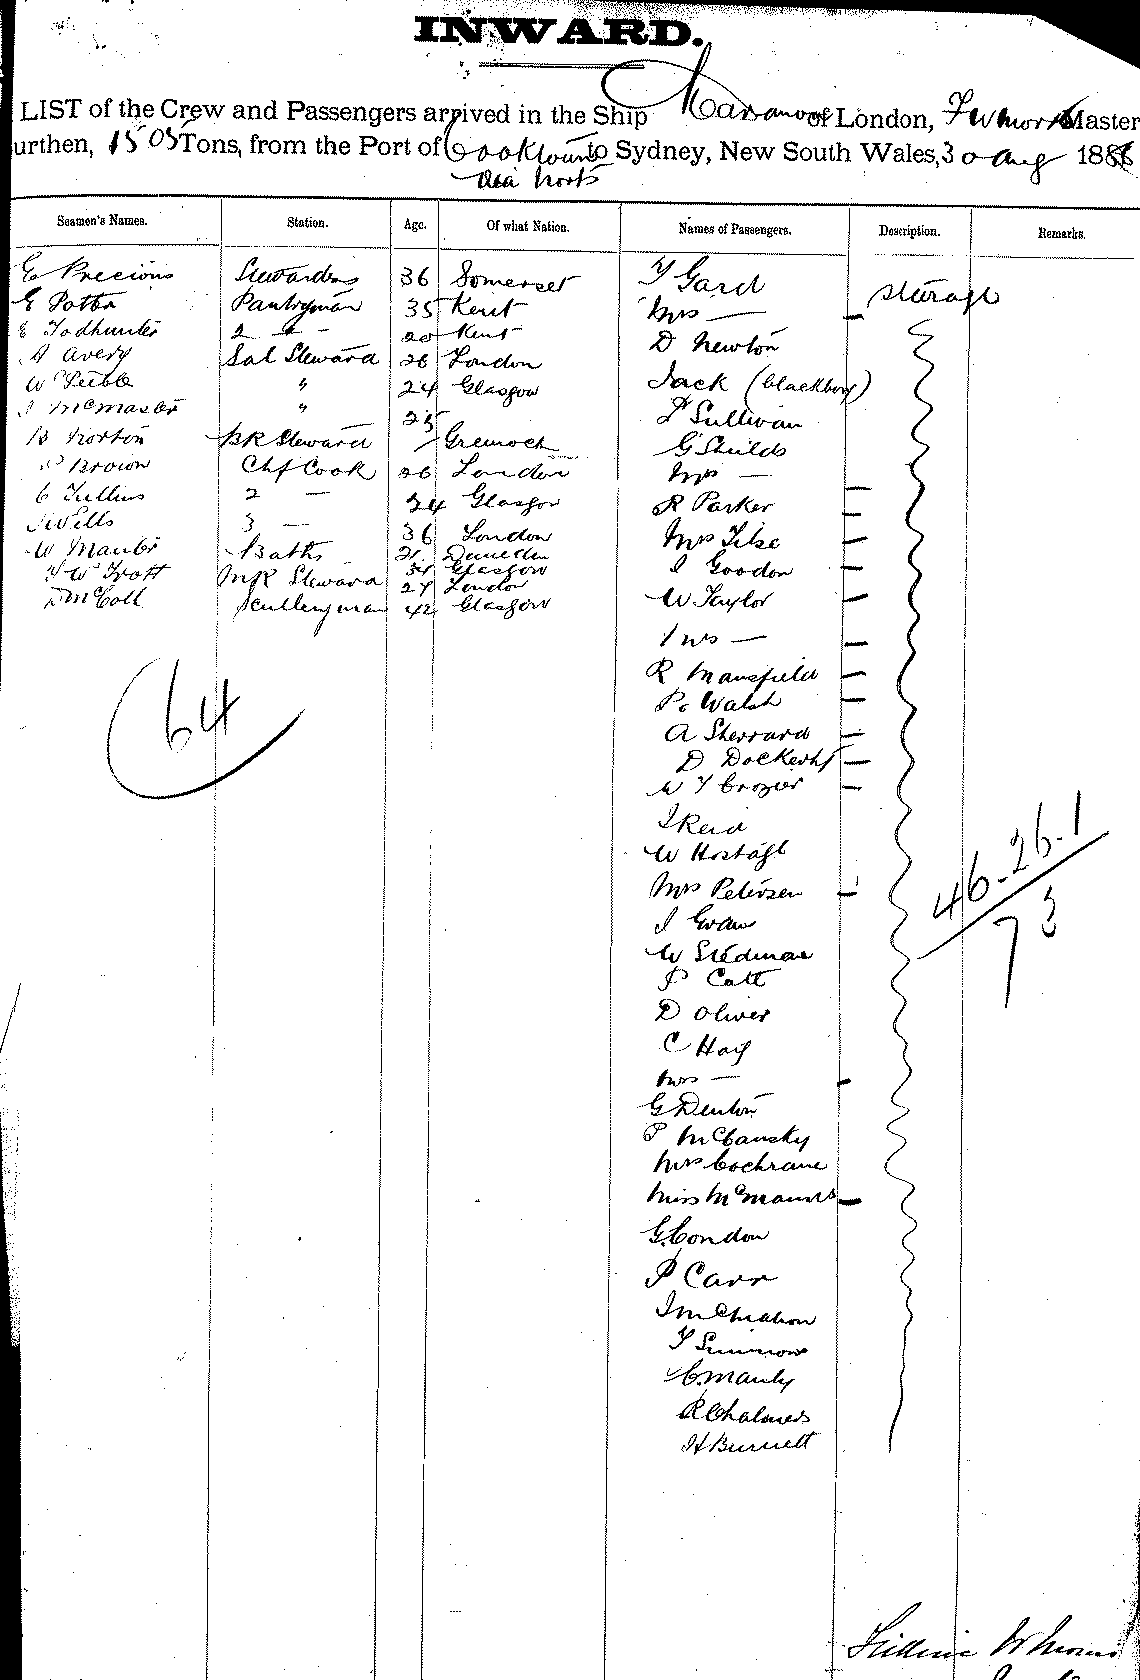 INWARD.
LIST of the Crew and Passengers arrived in the Ship Maranoa of London, Master
urthen, 1505 Tons, from the Port of Cooktown to Sydney, New South Wales, 30 Aug 188
via Ports
Seamen's Names. Station. Age. Of what Nation. Names of Passengers. Description. Remarks.
E Precious Stewardess 36 Somerset T Gard steerage
E Potter Pantryman 35 Kent Mrs —
E Todhunter 2 " — 20 Kent D Newton
A Avery Sal Steward 26 London Jack (blackboy)
W Peeble " 24 Glasgow Sullivan
J McMaster " 25 G Shields
B Norton BK Steward Greenock Mrs —
P Brown Chf Cook 26 London R Parker
C Tullius 2 — 24 Glasgow Mrs Tilse
Wells 3 — 36 London J Goodon
W Manler Baths 21 Dunedin W Taylor
W Trott Mr Steward 27 London Mrs —
McColl Sculleryman 42 Glasgow R Mansfield
P. Walsh
A Sherrard
D
W T Crozier
J Reid
W
Mrs Petersen
J Ewan
W Stedman
P Catt
D Oliver
C Hay
Mrs —
G Denton
P McCansky
Mrs Cochrane
Miss McManus
G. Condon
P Carr
J McMahon
T
C. Manly
R Chalmers
H Burnett
64
46.26.1
73